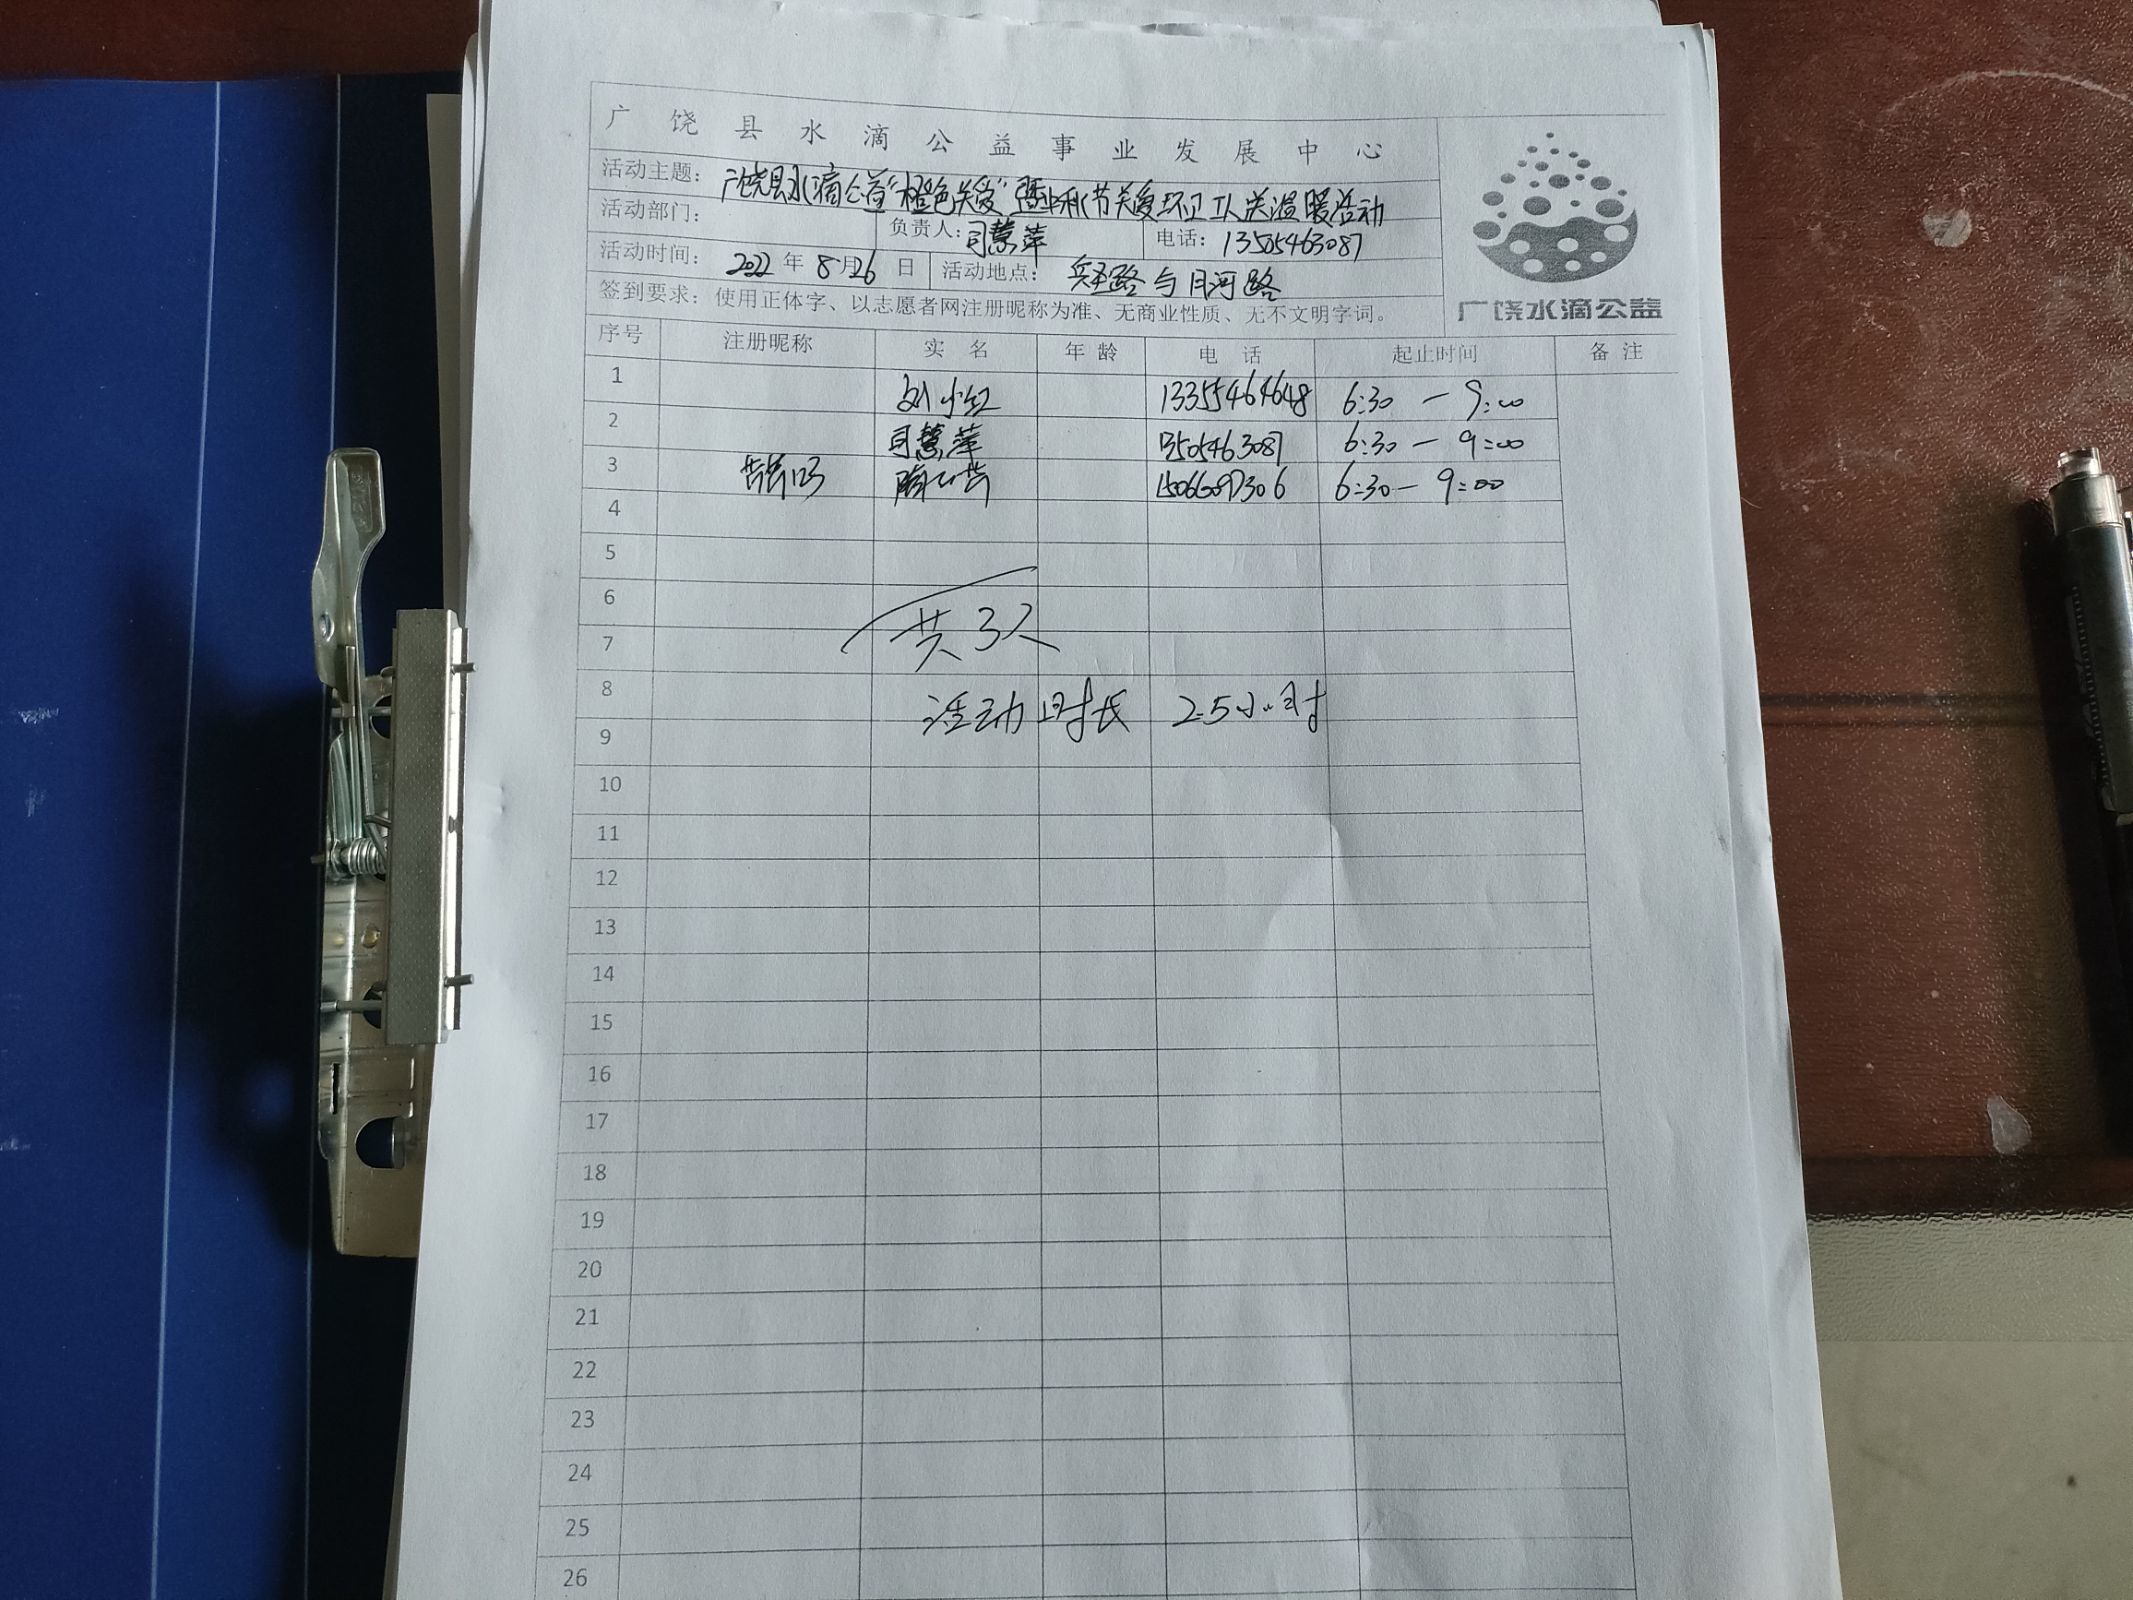 广饶县水滴公益事业发展中心
活动主题：广饶县水滴公益"橙色关爱" 关爱环卫工人送温暖活动
活动部门： 负责人：司慧萍 电话：13505463087
活动时间：2022年8月26日 活动地点： 路与月河路
签到要求：使用正体字、以志愿者网注册昵称为准、无商业性质、无不文明字词。
广饶水滴公益
序号 注册昵称 实 名 年 龄 电 话 起止时间 备 注
1 刘小红 13355464648 6:30 — 9:00
2 司慧萍 13505463087 6:30 — 9:00
3 15066097306 6:30 — 9:00
4
5
6
共3人
7
8
活动时长 2.5小时
9
10
11
12
13
14
15
16
17
18
19
20
21
22
23
24
25
26